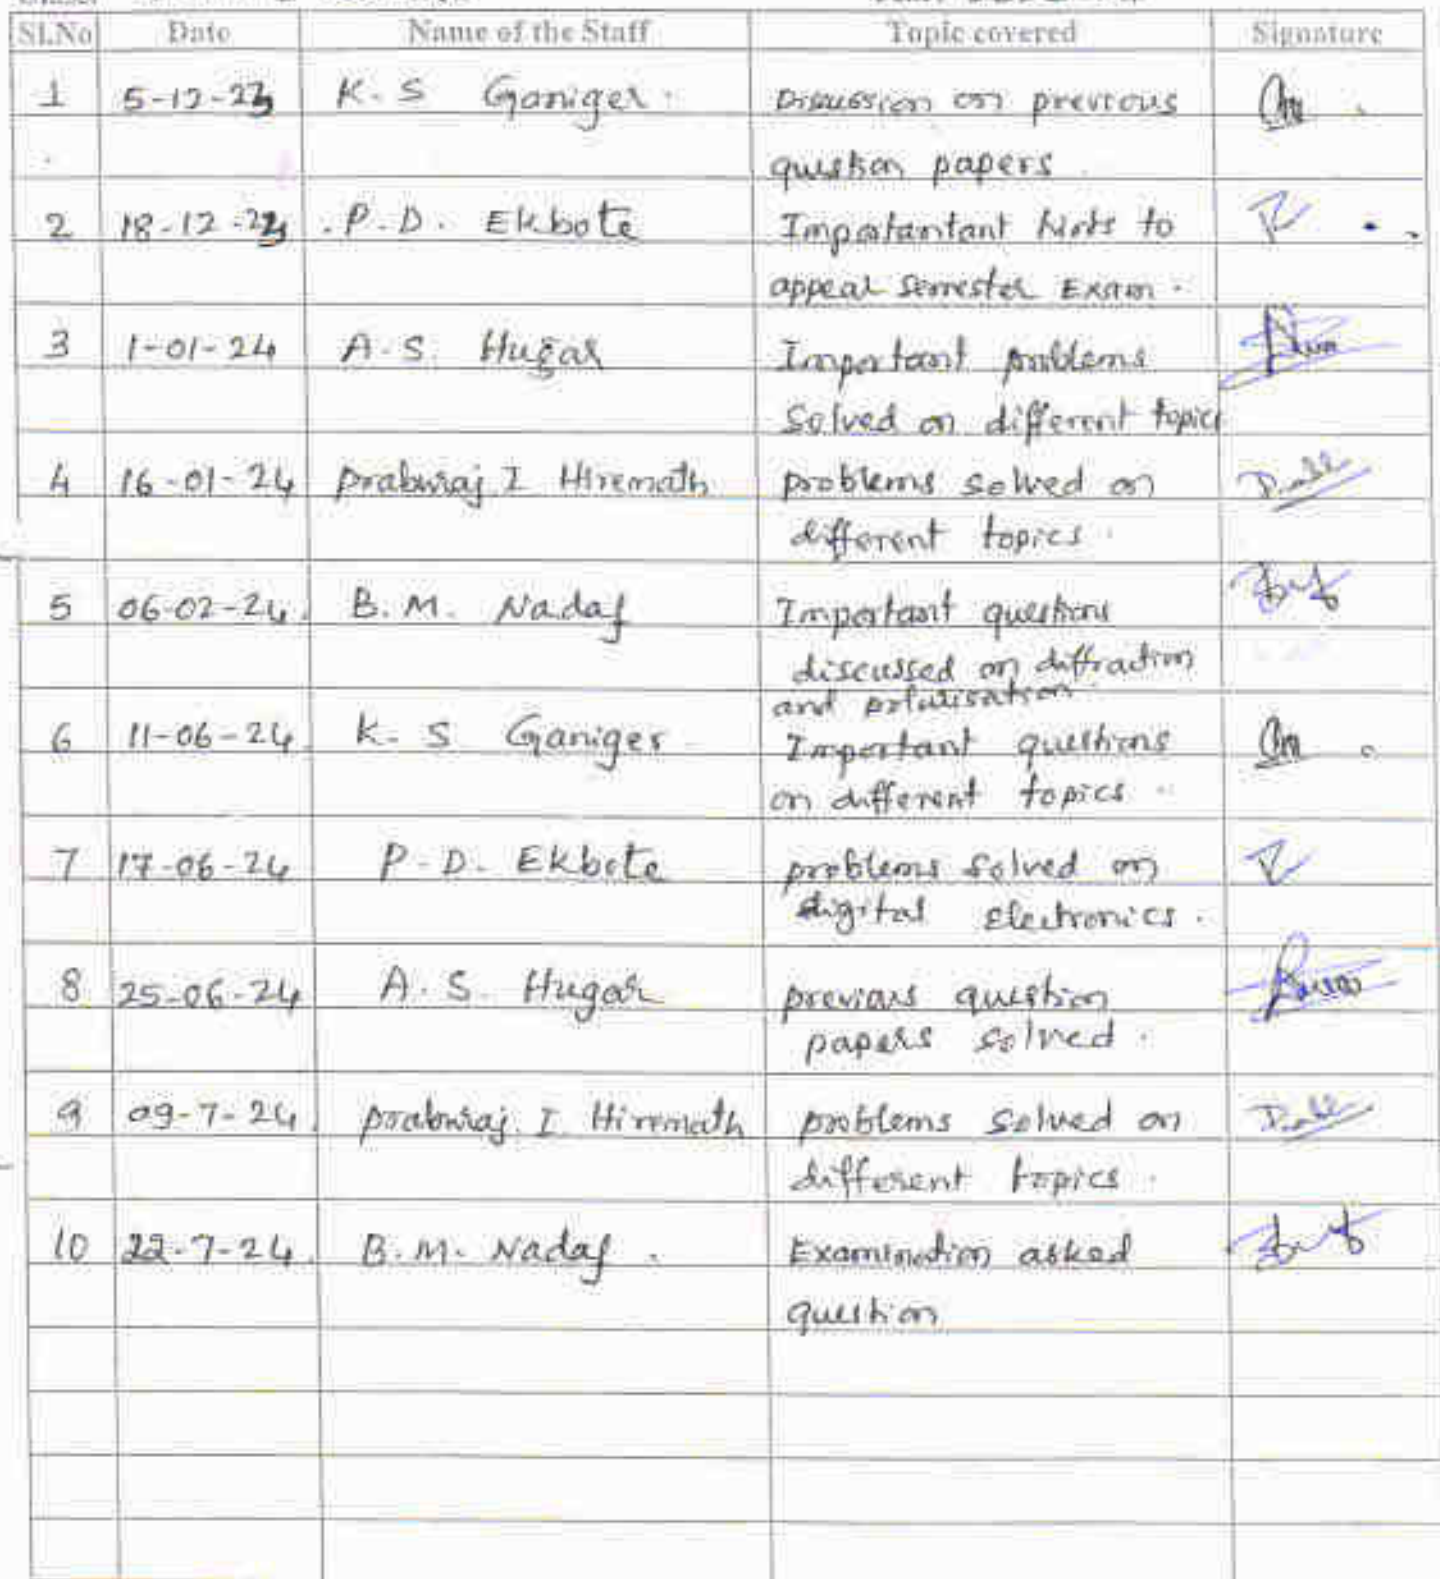 Sl.No Date Name of the Staff Topic covered Signature
1 5-12-23 K. S Ganiger. Discussion on previous
question papers.
2 18-12-23 . P. D. Ekbote Impoatantant hints to
appeal semester Exam.
3 1-01-24 A. S. Hugar Important problems
Solved on different topics
4 16-01-24 praburaj I Hiremath problems solved on
different topics.
5 06-02-24. B. M. Nadaf Important questions
discussed on diffraction
and polarisation.
6 11-06-24. K. S Ganiger Important questions
on different topics.
7 17-06-24 P. D. Ekbote problems solved on
digital electronics.
8 25-06-24 A. S. Hugar previous question
papers solved.
9 09-7-24. praburaj. I Hiremath problems solved on
different topics.
10 22-7-24. B. M. Nadaf. Examination asked
question